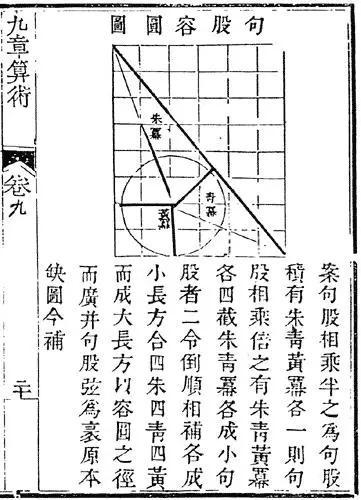 句股容圓圖
朱冪
青冪
黃冪
案句股相乘半之為句股
積有朱青黃冪各一則句
股相乘倍之有朱青黃冪
各四截朱青冪各成小句
股者二令倒順相補各成
小長方合四朱四青四黃
而成大長方以容圓之徑
而廣并句股弦為袤原本
缺圖今補
九章算術
卷九
二十七